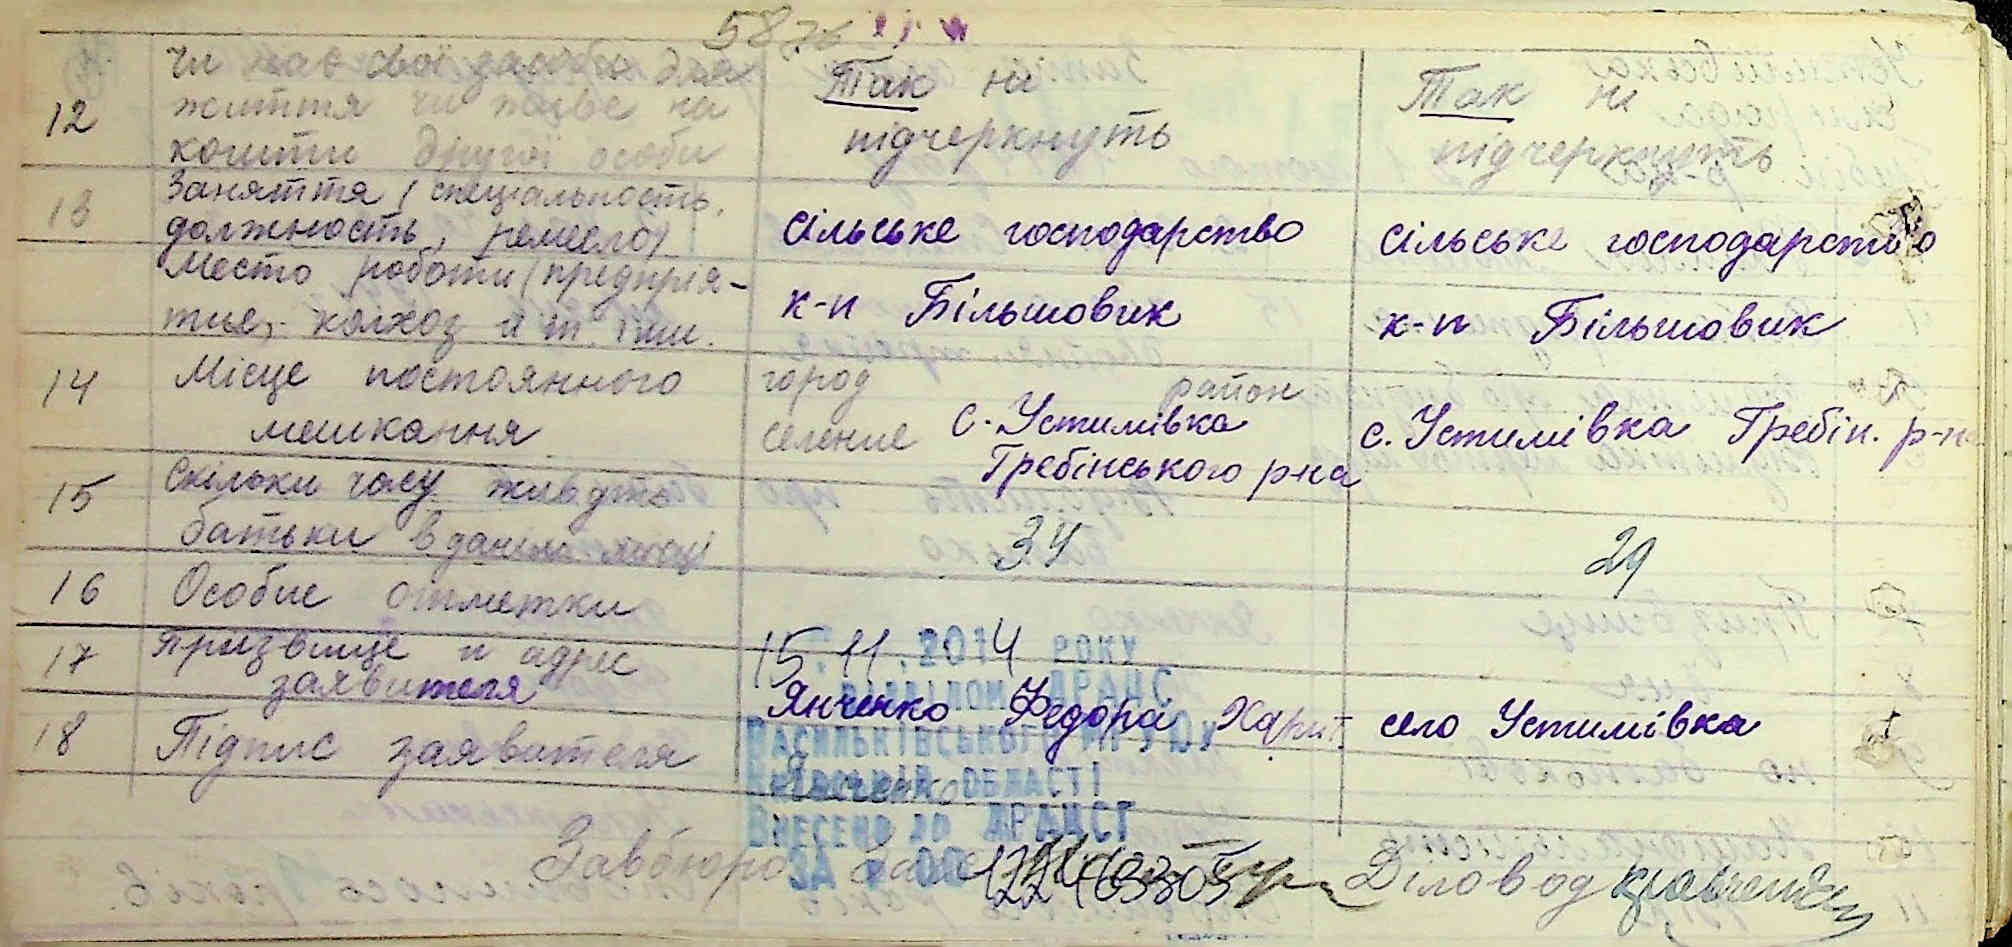 58
12
чи має свої засоби для
життя чи живе на
кошти другої особи
Так ні
підчеркнуть
Так ні
підчеркнуть
13
Заняття (специальность,
должность, ремесло)
сільське господарство
сільське господарство
Место роботи (предприя-
тие, колхоз и т. інш.
к-п Більшовик
к-п Більшовик
14
Місце постоянного
мешкання
город район
селение с. Устимівка
Гребінського р-на
с. Устимівка Гребін. р-на
15
Скільки часу живуть
батьки в даном місці
34
29
16
Особие отметки
17
Призвище и адрес
заявителя
15.11.2014 РОКУ
ВІДДІЛОМ ДРАЦС
Янченко Федора Харит
село Устимівка
ВАСИЛЬКІВСЬКОГО МРУЮ
18
Підпис заявителя
КИЇВСЬКІЙ ОБЛАСТІ
Янченко
ВНЕСЕНО ДО ДРАЦСГ
ЗА № 00
Завбюро
Діловод Кравченко